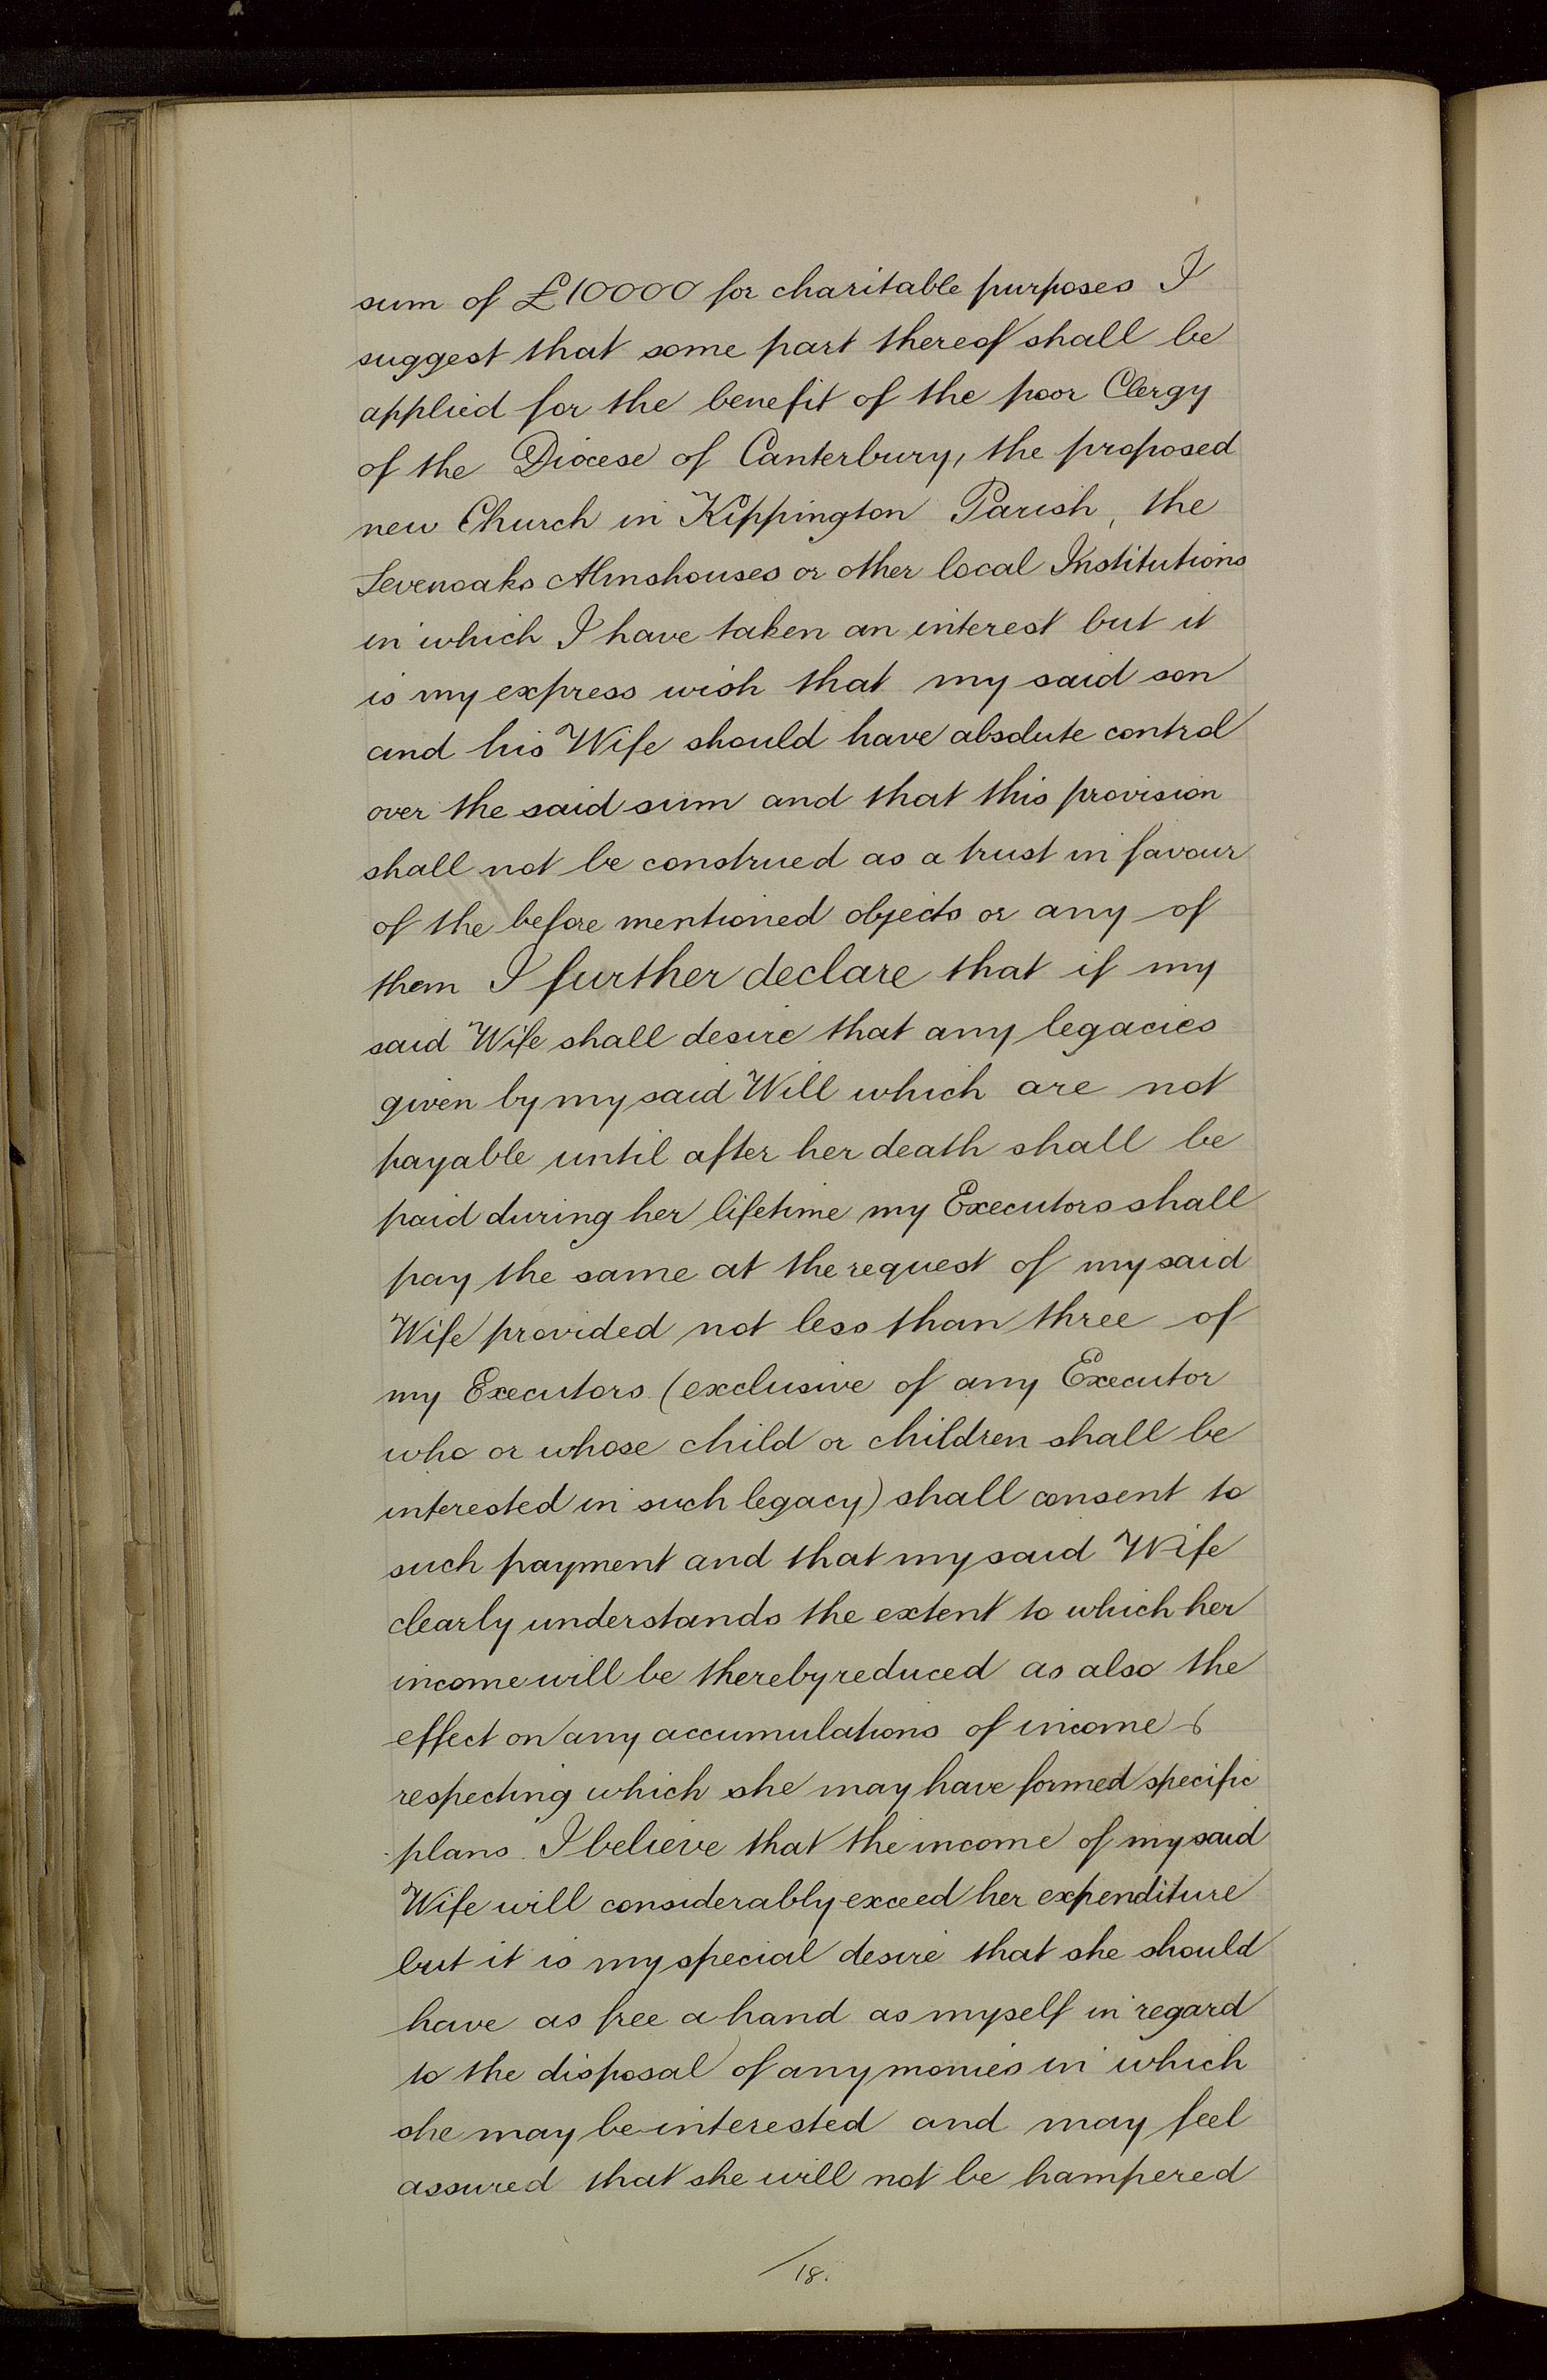 sum of £10000 for charitable purposes I
suggest that some part thereof shall be
applied for the benefit of the poor Clergy
of the Diocese of Canterbury, the proposed
new Church in Kippington Parish, the
Sevenoaks Almshouses or other local Institutions
in which I have taken an interest but it
is my express wish that my said son
and his Wife should have absolute control
over the said sum and that this provision
shall not be construed as a trust in favour
of the before mentioned objects or any of
them I further declare that if my
said Wife shall desire that any legacies
given by my said Will which are not
payable until after her death shall be
paid during her lifetime my Executors shall
pay the same at the request of my said
Wife provided not less than three of
my Executors (exclusive of any Executor
who or whose child or children shall be
interested in such legacy) shall consent to
such payment and that my said Wife
clearly understands the extent to which her
income will be thereby reduced as also the
effect on any accumulations of income
respecting which she may have formed specific
plans. I believe that the income of my said
Wife will considerably exceed her expenditure
but it is my special desire that she should
have as free a hand as myself in regard
to the disposal of any monies in which
she may be interested and may feel
assured that she will not be hampered
18.